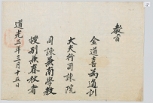 教旨
金道喜爲通訓
大夫行司諫院
司諫兼南學教
授別兼春秋者
道光三年三月十五日